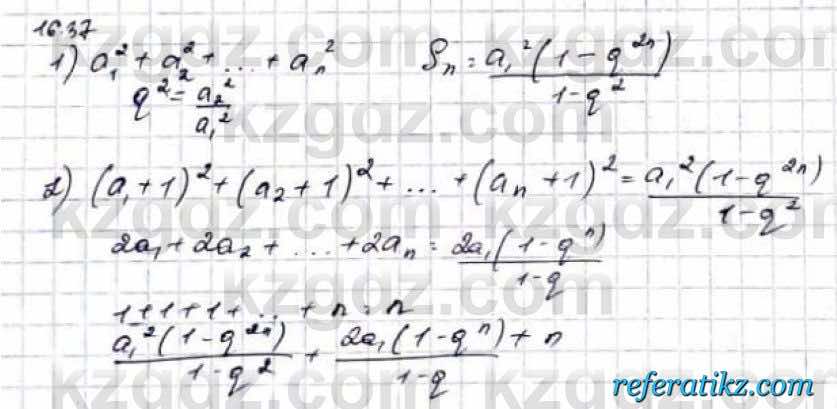 16.37
1) a₁² + a₂² + ... + aₙ² Sₙ = a₁²(1 − q²ⁿ) / 1 − q²
q² = a₂² / a₁²
2) (a₁ + 1)² + (a₂ + 1)² + ... + (aₙ + 1)² = a₁²(1 − q²ⁿ) / 1 − q²
2a₁ + 2a₂ + ... + 2aₙ = 2a₁(1 − qⁿ) / 1 − q
1 + 1 + 1 + ... + n = n
a₁²(1 − q²ⁿ) / 1 − q² + 2a₁(1 − qⁿ) / 1 − q + n
kzgdz.com
referatikz.com